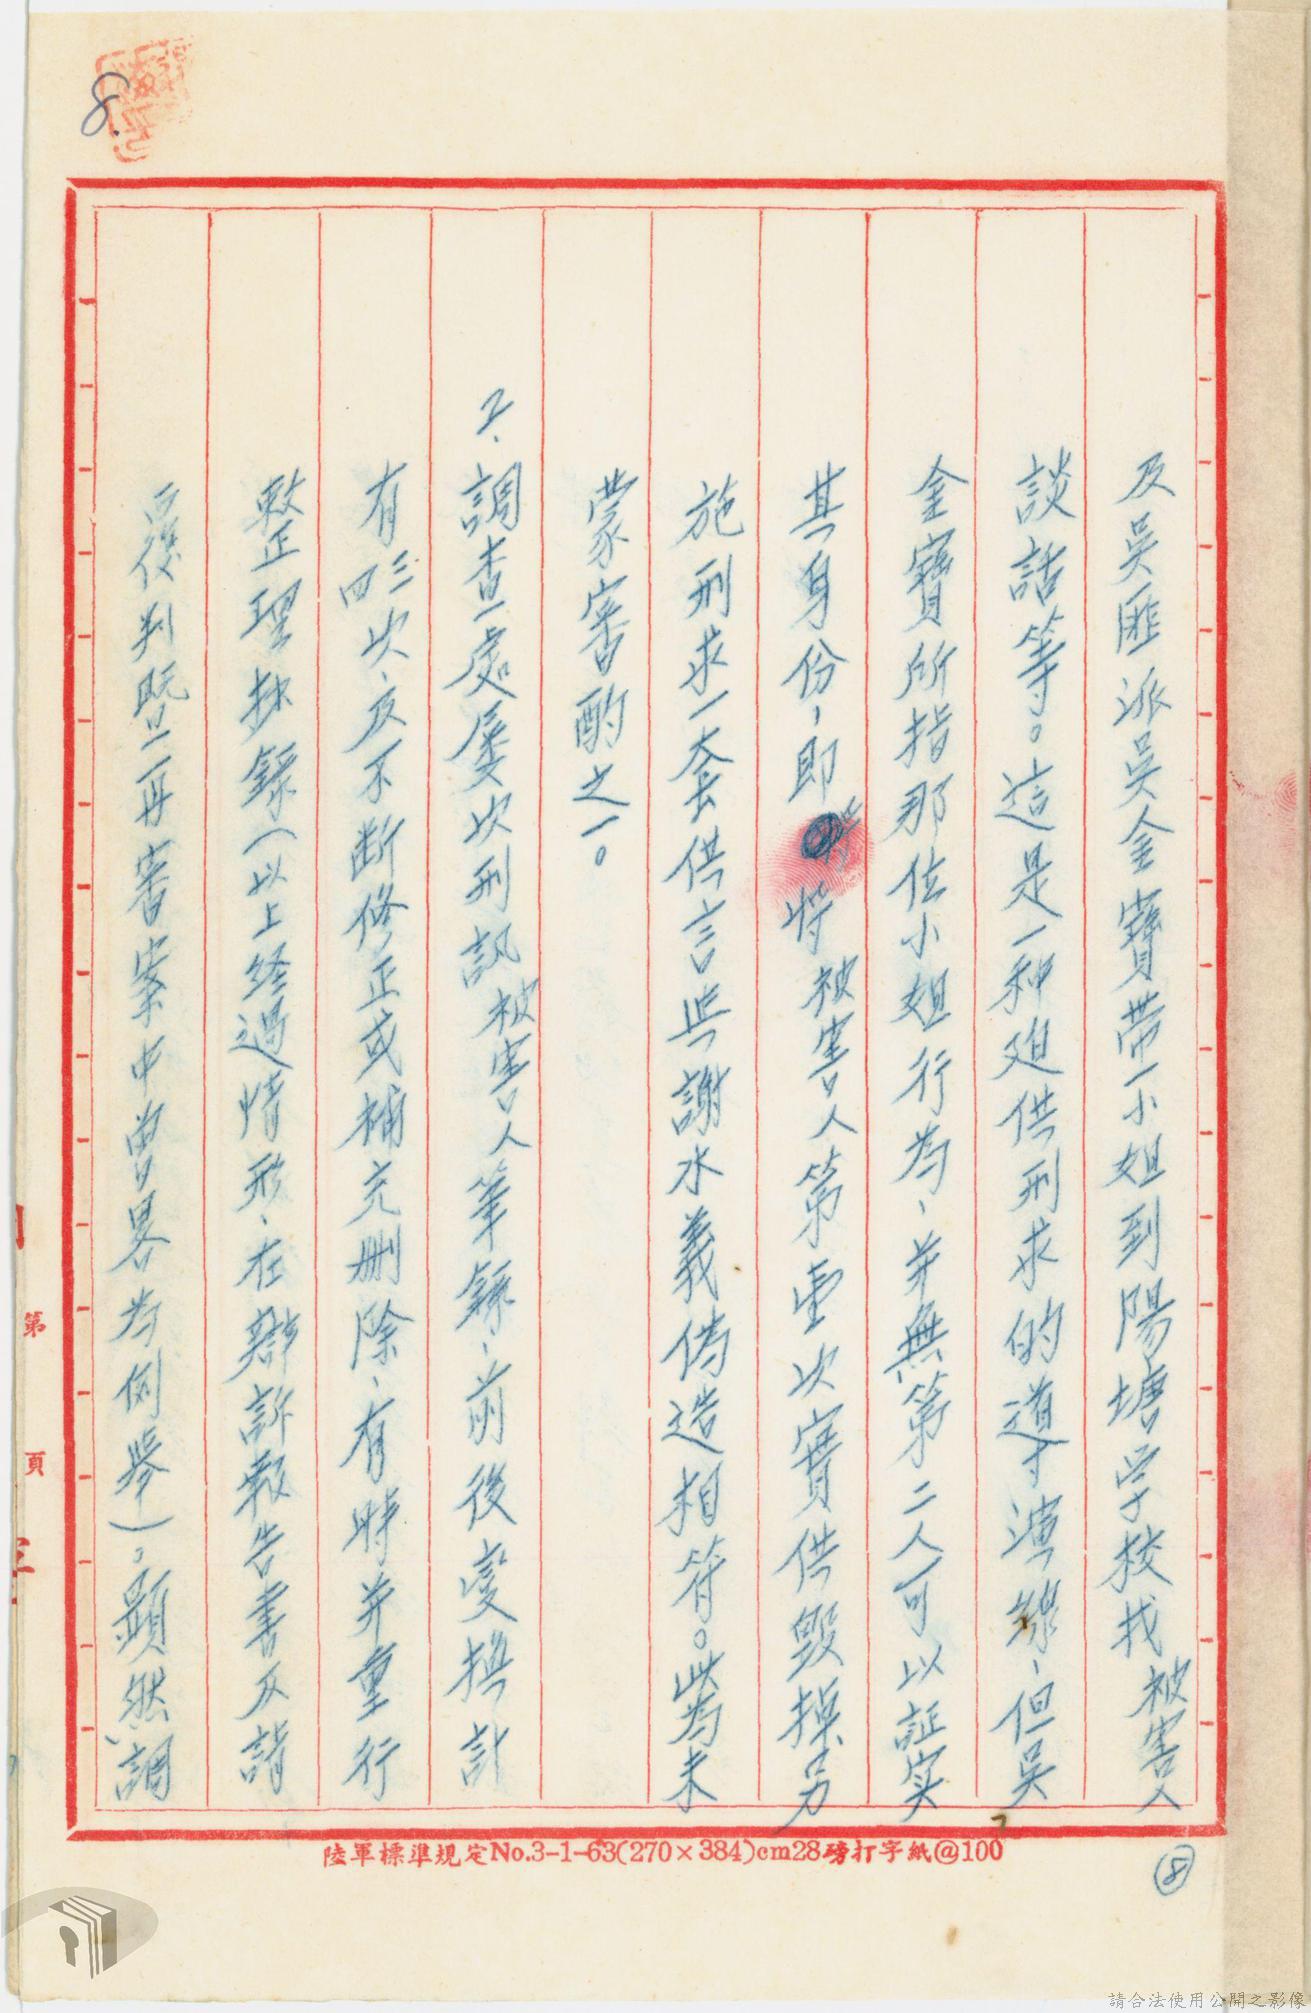 8.
及吳匪派吳金寶帶一小姐到陽塘学校找被害人
談話等。這是一种廹供刑求的導導線、但吳
金寶所指那位小姐行為、并無第二人可以証实
其身份，即將被害人第壹次實供毀掉另
施刑求一套供言與謝水義偽造相符。此為未
蒙審酌之一。
2.調查處屡次刑訊被害人筆錄、前後变換計
有三四次、及不断修正或補充刪除、有時并重行
整理抄錄（以上经過情形、在辯訴報告書及請
覆判暨再審案中曾畧為例舉）。顯然調
陸軍標準規定No.3-1-63(270×384)cm28磅打字紙@100
⑧
第
頁
請合法使用公開之影像